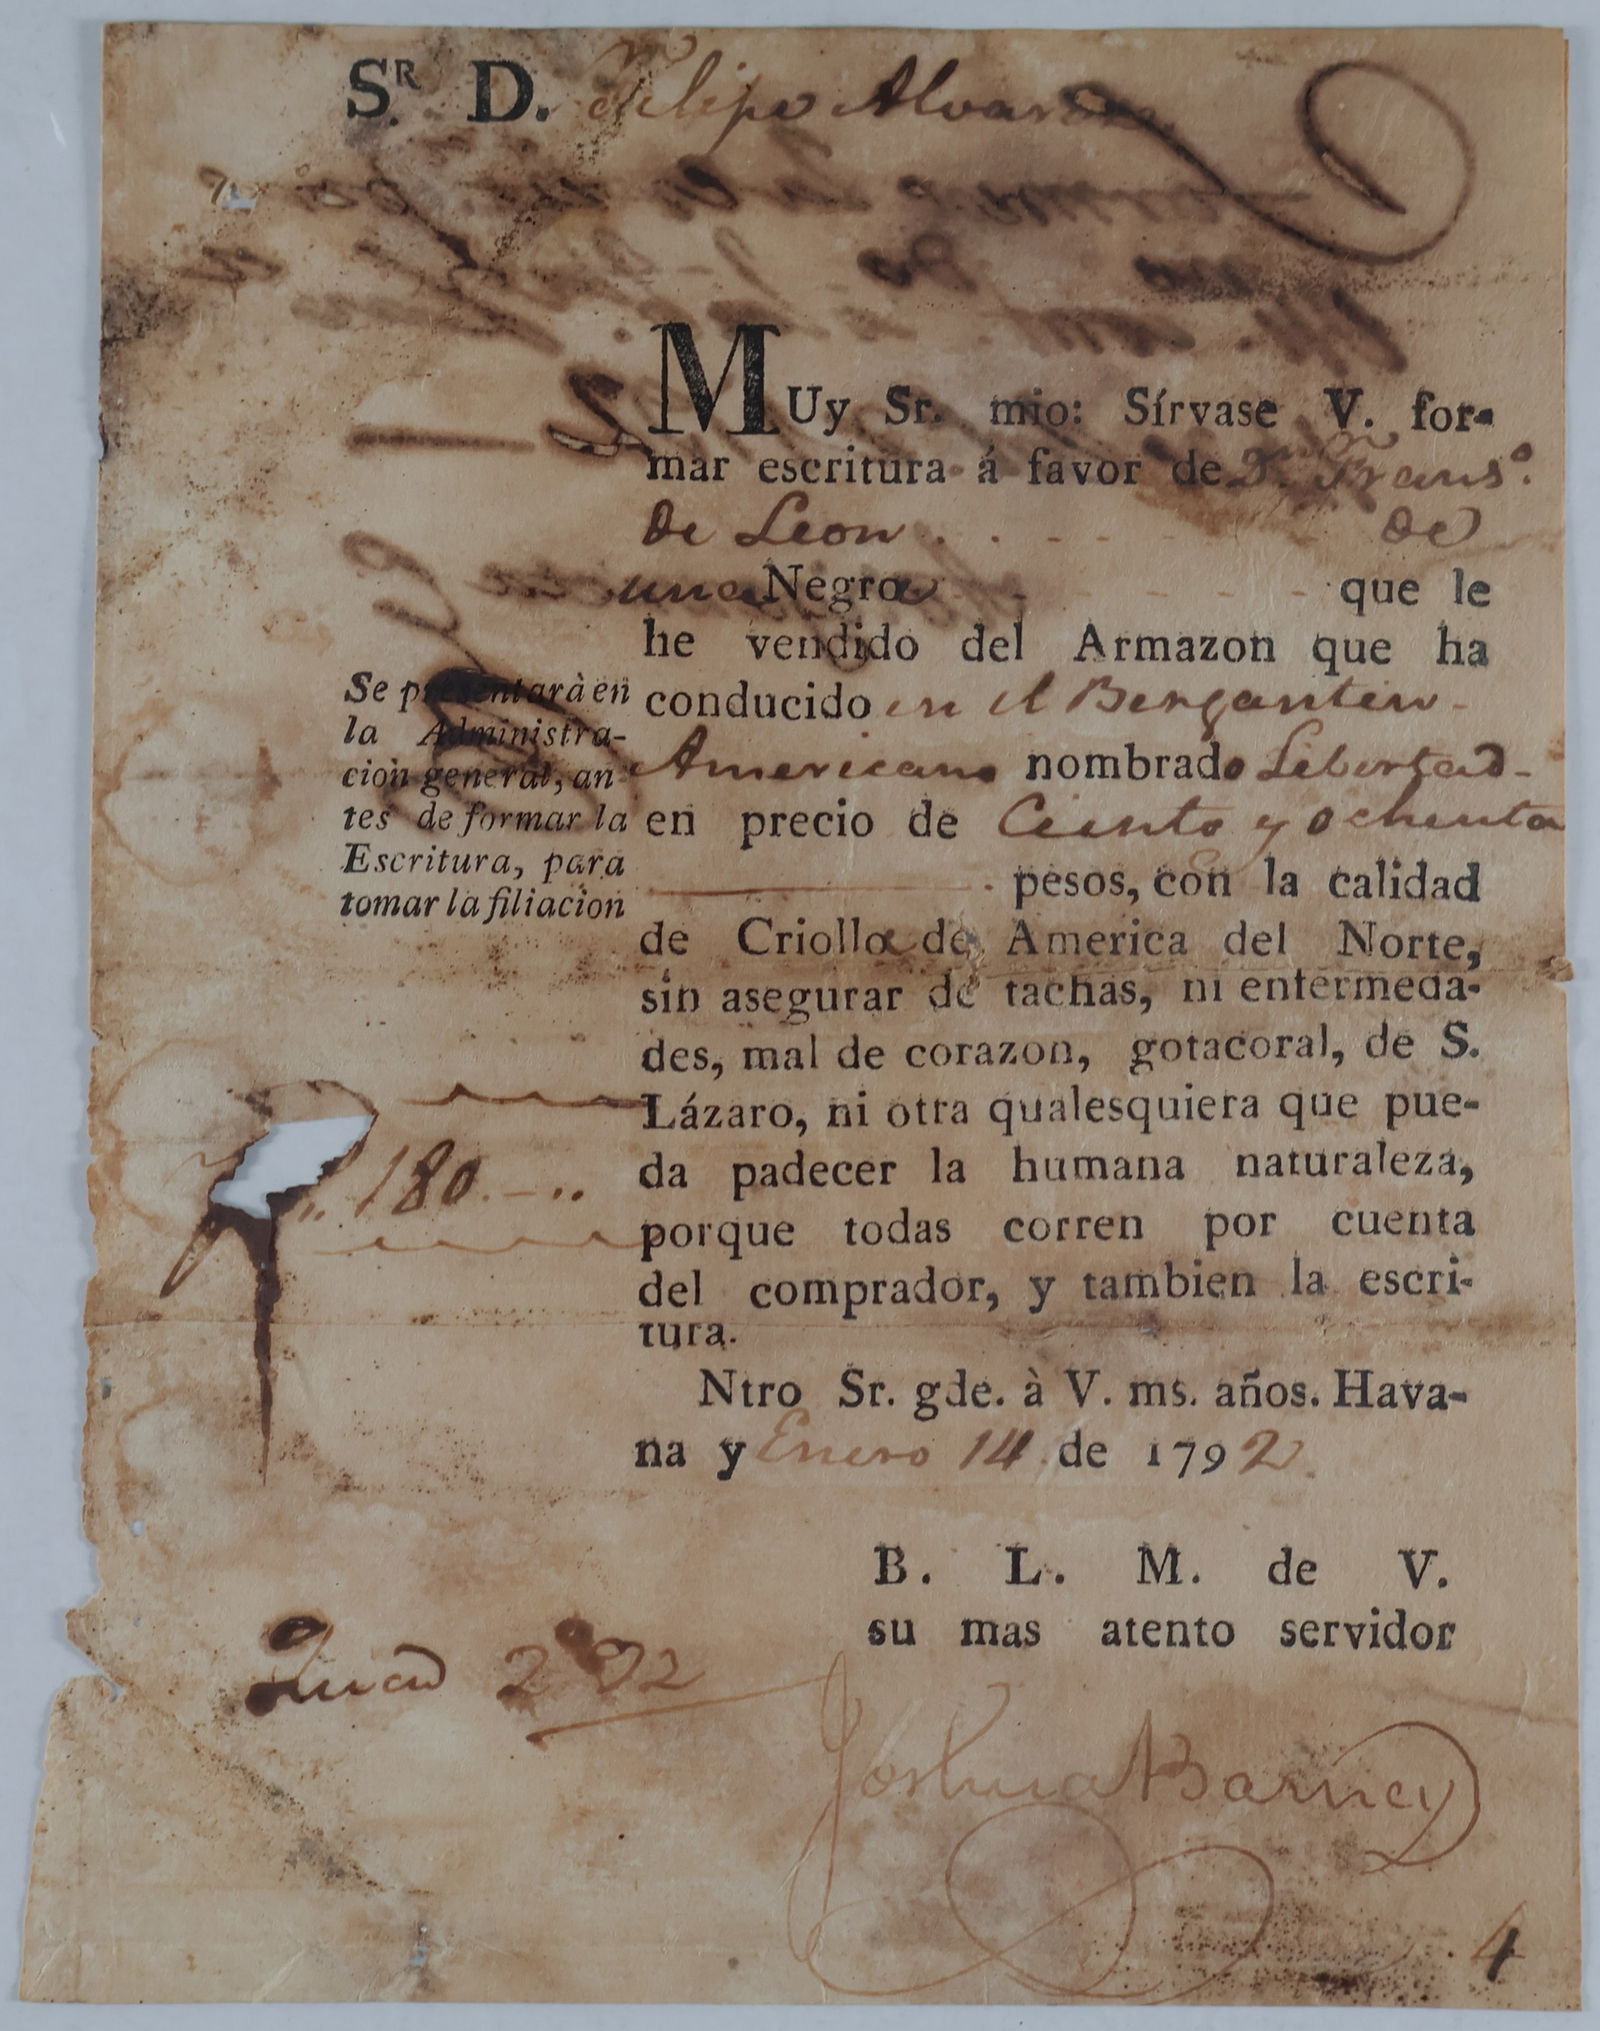 Sr. D. Felipe Alvarez
MUy Sr. mio: Sírvase V. for-
mar escritura á favor de Dn. Fransº.
de Leon . . - - - de
una Negra - - - que le
he vendido del Armazon que ha
conducido en el Bergantin -
Americano nombrado Libertad -
en precio de Ciento y ochenta
pesos, con la calidad
de Criolla de America del Norte,
sin asegurar de tachas, ni enfermeda-
des, mal de corazon, gotacoral, de S.
Lázaro, ni otra qualesquiera que pue-
da padecer la humana naturaleza,
porque todas corren por cuenta
del comprador, y tambien la escri-
tura.
Ntro Sr. gde. à V. ms. años. Hava-
na y Enero 14 de 1792
B. L. M. de V.
su mas atento servidor
Joshua Barney
Se presentarà en
la Administra-
cion general, an-
tes de formar la
Escritura, para
tomar la filiacion
180. - ..
4